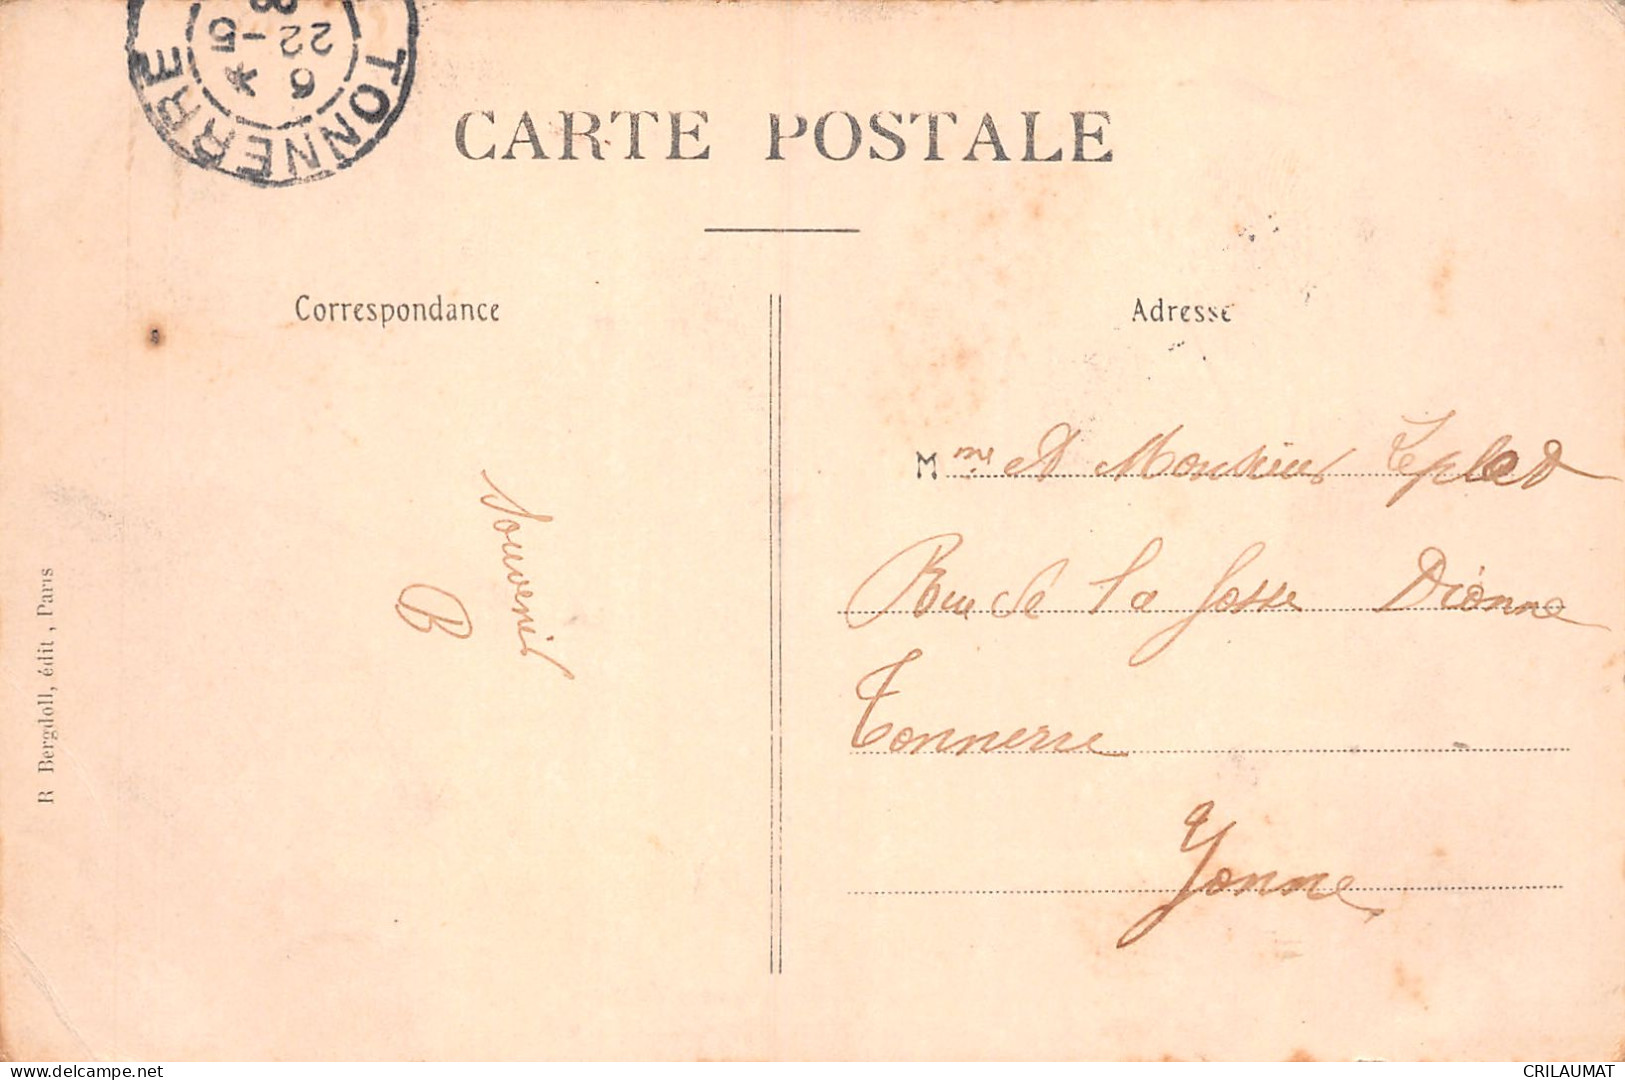 TONNERRE
6
22-5
CARTE POSTALE
Correspondance
Adresse
Souvenir
B
Mme et Monsieur
Rue de la fosse Dionne
Tonnerre
Yonne
R Bergdoll, édit, Paris
CRILAUMAT
delcampe.net